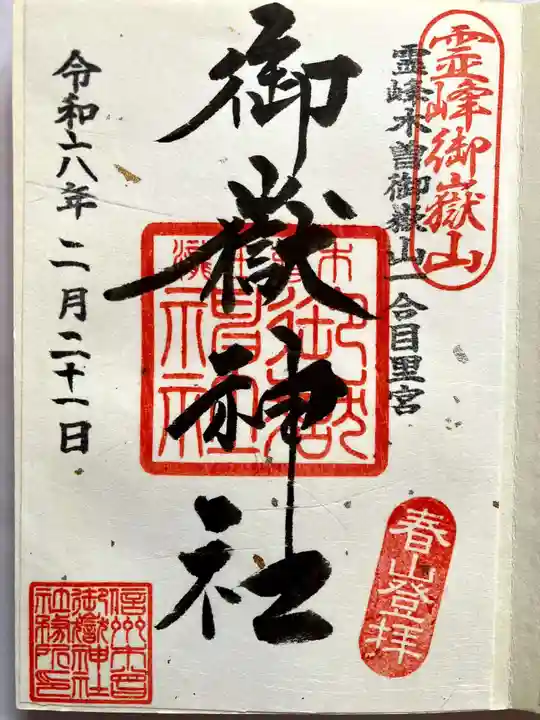 霊峰御嶽山
霊峰木曽御嶽山一合目里宮
春山登拝
御嶽神社
令和六八年二月二十一日
信州木曽
御嶽神社
社務所印